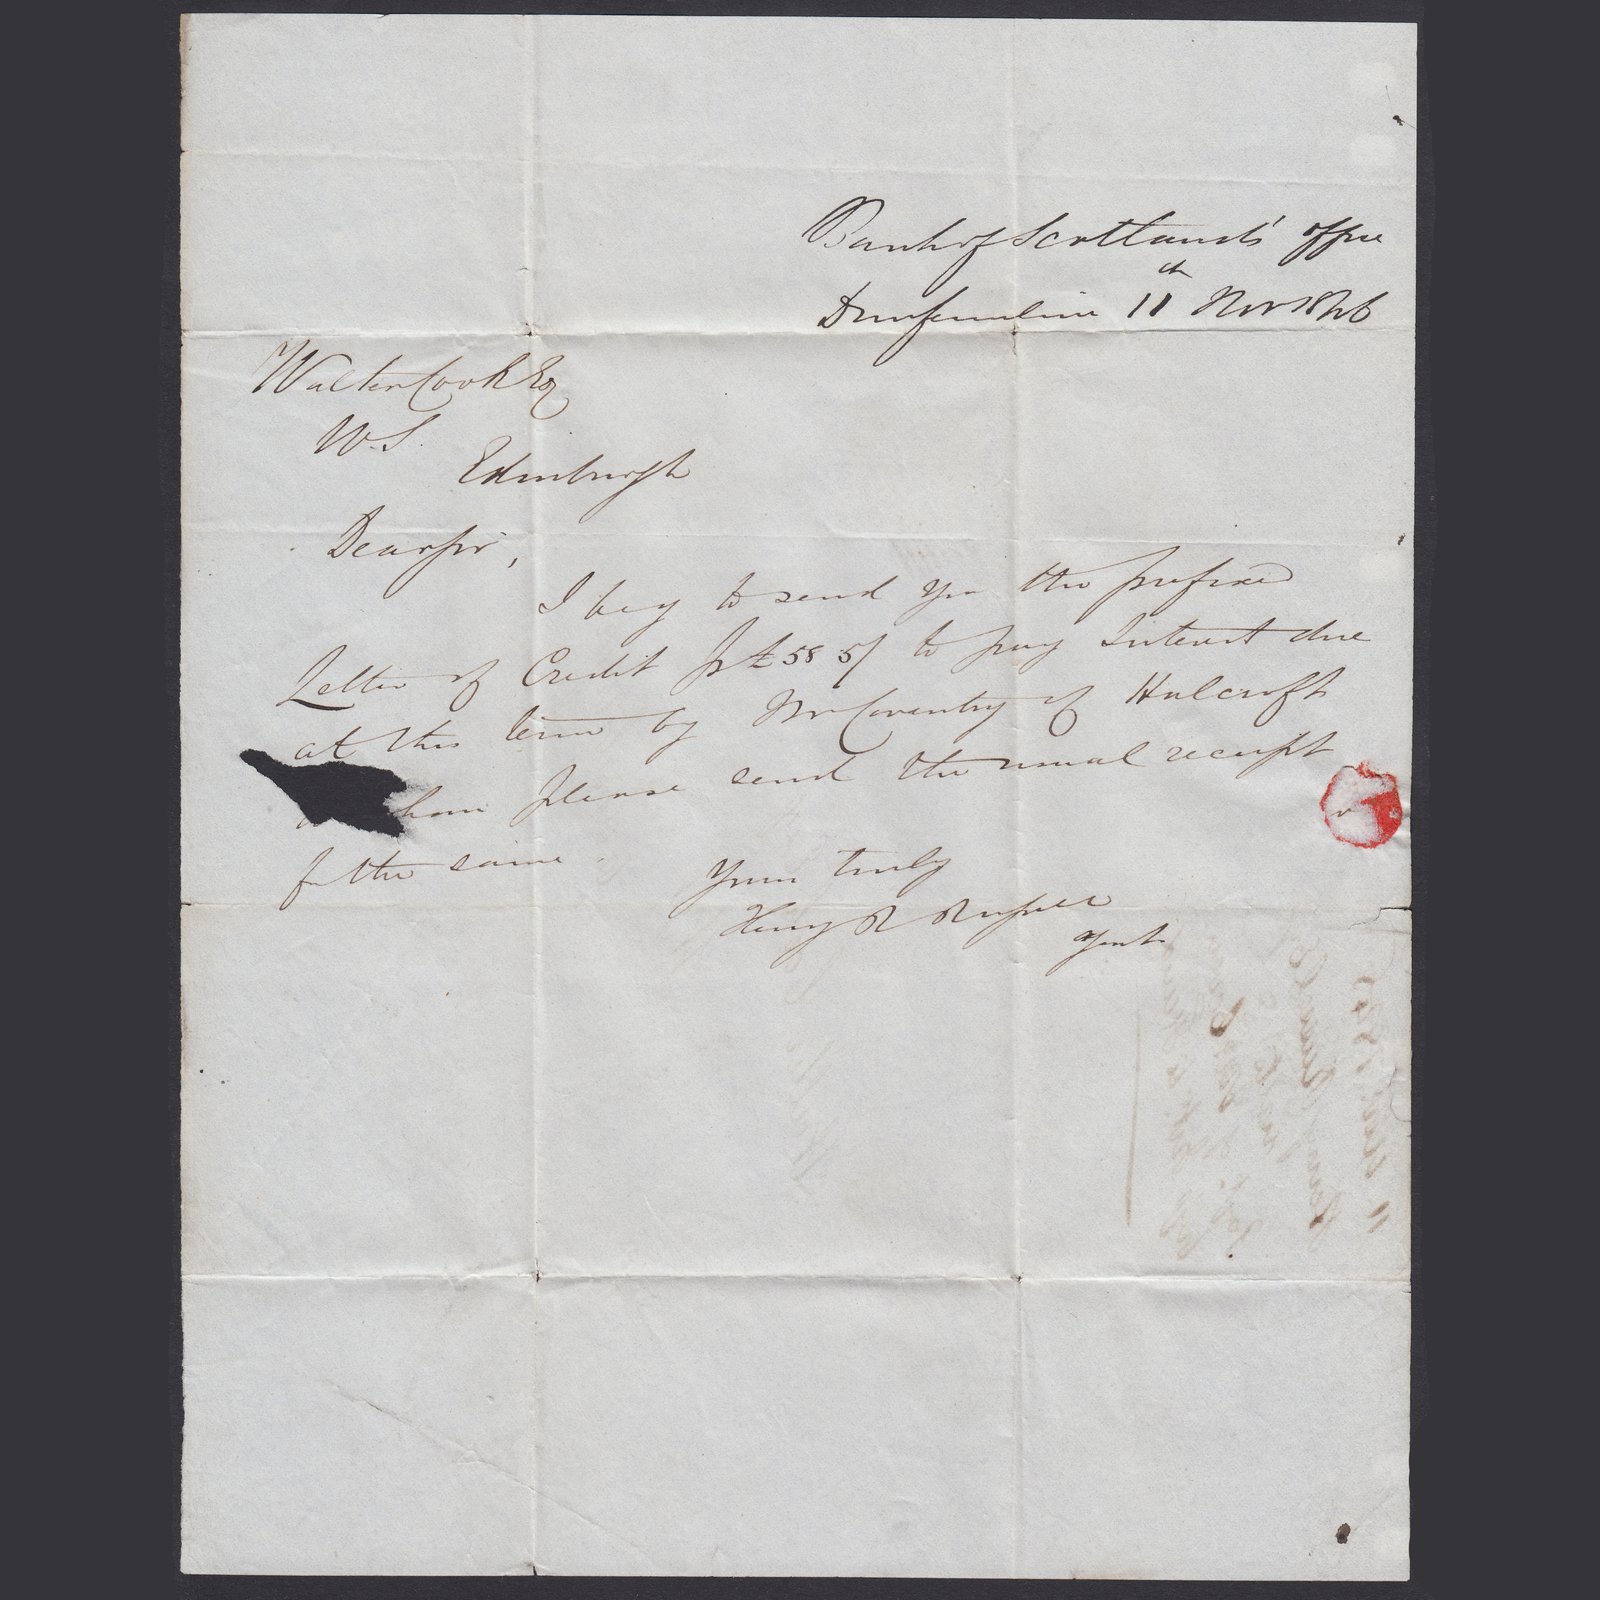 Bank of Scotland's office
Dunfermline 11th Nov 1846
Walter Cook Esq
W.S.
Edinburgh
Dear Sir,
I beg to send you the prefixed
Letter of Credit for £58 5/ to pay Interest due
at this term by Mr Coventry of
please send the usual receipt
for the same.
Yours truly
Henry R Russell
Agent